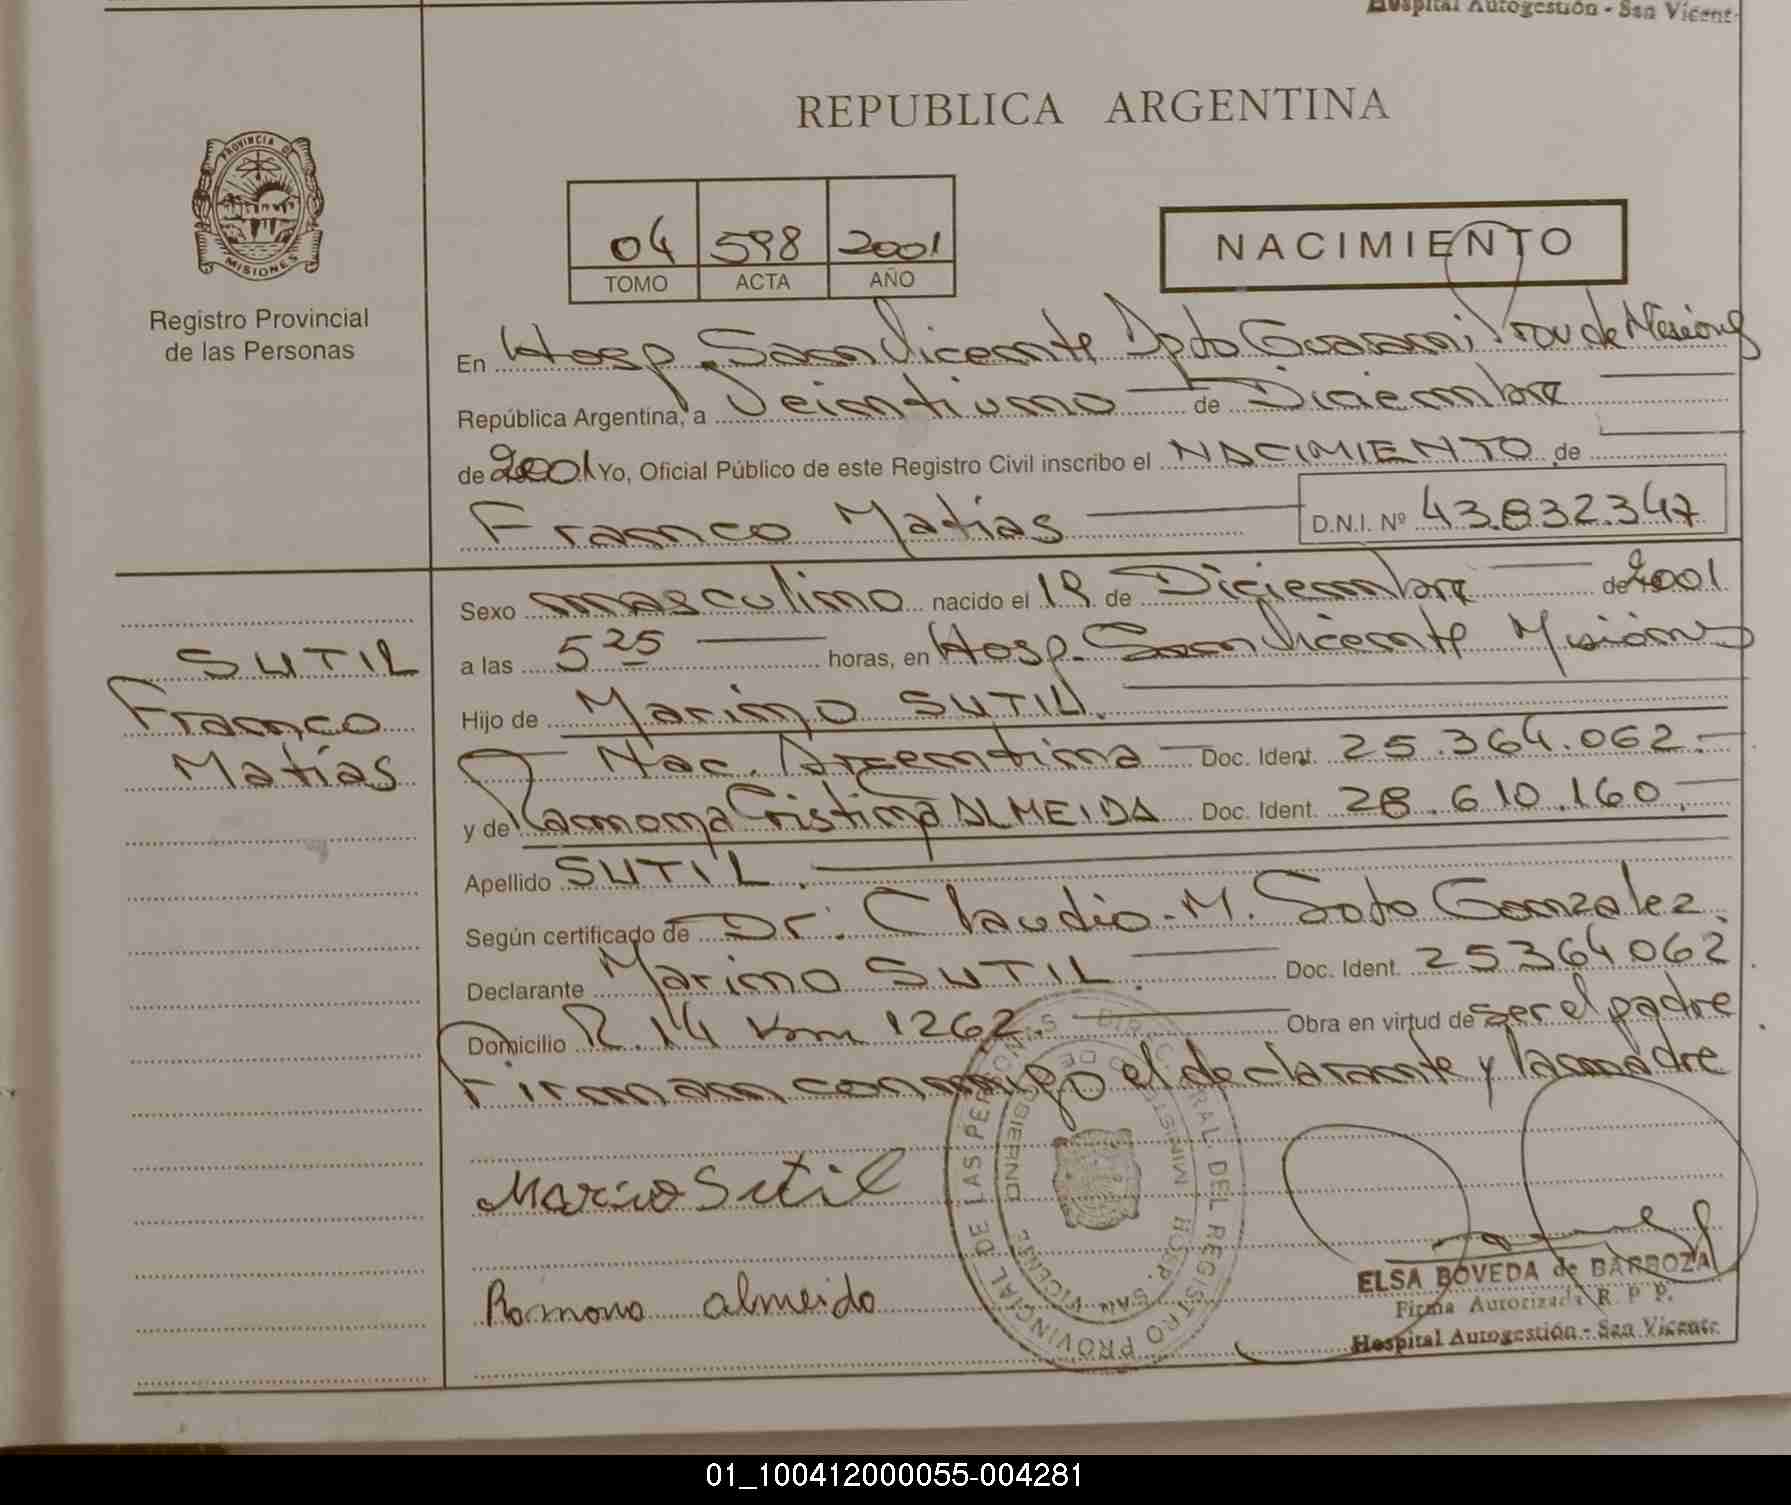 Hospital Autogestión - San Vicent-
REPUBLICA ARGENTINA
PROVINCIA DE
MISIONES
Registro Provincial
de las Personas
04 598 2001
TOMO ACTA AÑO
NACIMIENTO
En Hosp. San Vicente Dpto Guarani Prov de Misiones
República Argentina, a Veintiuno de Diciembre
de 2001 Yo, Oficial Público de este Registro Civil inscribo el NACIMIENTO de
Franco Matias D.N.I. Nº 43.832.347
SUTIL
Franco
Matías
Sexo masculino nacido el 19 de Diciembre de 2001
a las 5 25 horas, en Hosp. San Vicente Misiones
Hijo de Marino SUTIL.
Nac. Argentina Doc. Ident. 25.364.062.
y de Ramona Cristina ALMEIDA Doc. Ident. 28.610.160.
Apellido SUTIL.
Según certificado de Dr. Claudio M. Soto Gonzalez.
Declarante Marino SUTIL. Doc. Ident. 25364062
Domicilio R.14 Km 1262. Obra en virtud de ser el padre
Firman conmigo el declarante y la madre
Marino Sutil
Ramona almeida
DIREC. GRAL DEL REGISTRO PROVINCIAL DE LAS PERSONAS
MINISTERIO DE GOBIERNO
HOSP. SAN VICENTE
ELSA BOVEDA de BARBOZA
Firma Autorizada R P P.
Hospital Autogestión - San Vicente
01_100412000055-004281